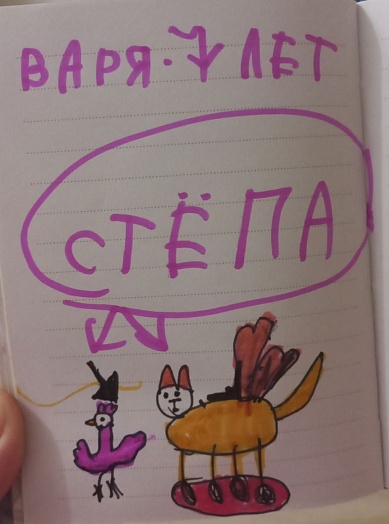 ВАРЯ. 7 ЛЕТ
СТЁПА